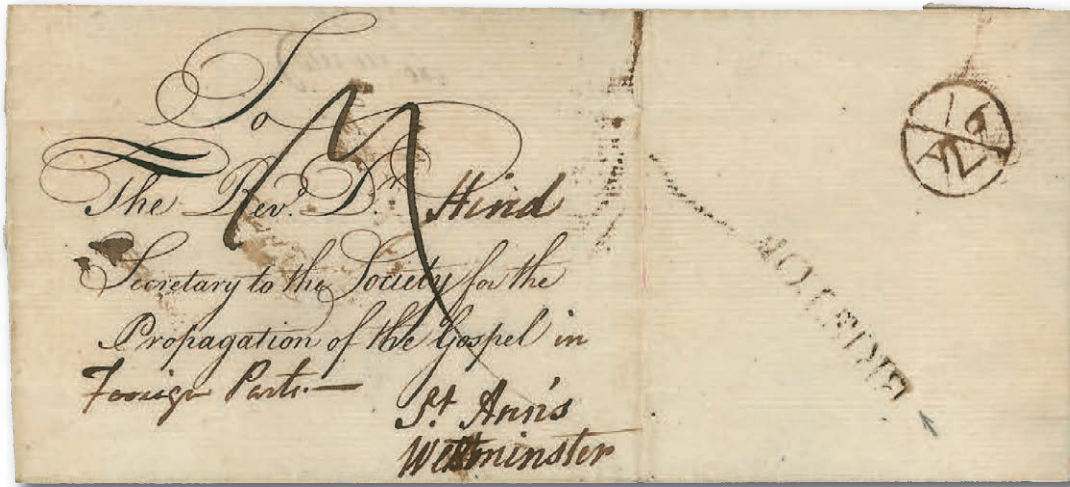 To
The Rev.d Dr. Hind
Secretary to the Society for the
Propagation of the Gospel in
Foreign Parts.—
St. Ann's
Westminster
BRISTOL